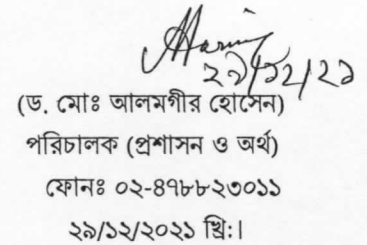 ২৯/১২/২১
(ড. মোঃ আলমগীর হোসেন)
পরিচালক (প্রশাসন ও অর্থ)
ফোনঃ ০২-৪৭৮৮২৩০১১
২৯/১২/২০২১ খ্রি:।